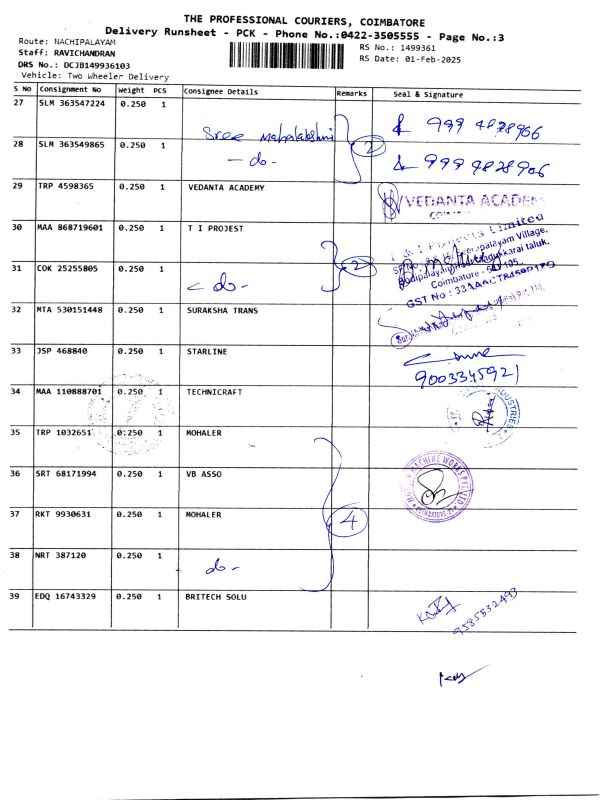 THE PROFESSIONAL COURIERS, COIMBATORE
Delivery Runsheet - PCK - Phone No.:0422-3505555 - Page No.:3
Route: NACHIPALAYAM
RS No.: 1499361
Staff: RAVICHANDRAN
RS Date: 01-Feb-2025
DRS No.: DCJB149936103
Vehicle: Two Wheeler Delivery
S No Consignment No Weight PCS Consignee Details Remarks Seal & Signature
27 SLM 363547224 0.250 1
Sree Mahalakshmi
28 SLM 363549865 0.250 1 - do - 2 999 4828906
29 TRP 4598365 0.250 1 VEDANTA ACADEMY VEDANTA ACADEMY
30 MAA 868719601 0.250 1 T I PROJEST
31 COK 25255805 0.250 1 - do - 2 Coimbatore
GST No :
32 MTA 530151448 0.250 1 SURAKSHA TRANS
33 JSP 468840 0.250 1 STARLINE
9003345921
34 MAA 110888701 0.250 1 TECHNICRAFT INDUSTRIES
35 TRP 1032651 0.250 1 MOHALER
36 SRT 68171994 0.250 1 VB ASSO MACHINE WORKS PVT LTD
37 RKT 9930631 0.250 1 MOHALER 4
38 NRT 387120 0.250 1 - do -
39 EDQ 16743329 0.250 1 BRITECH SOLU 9585532493